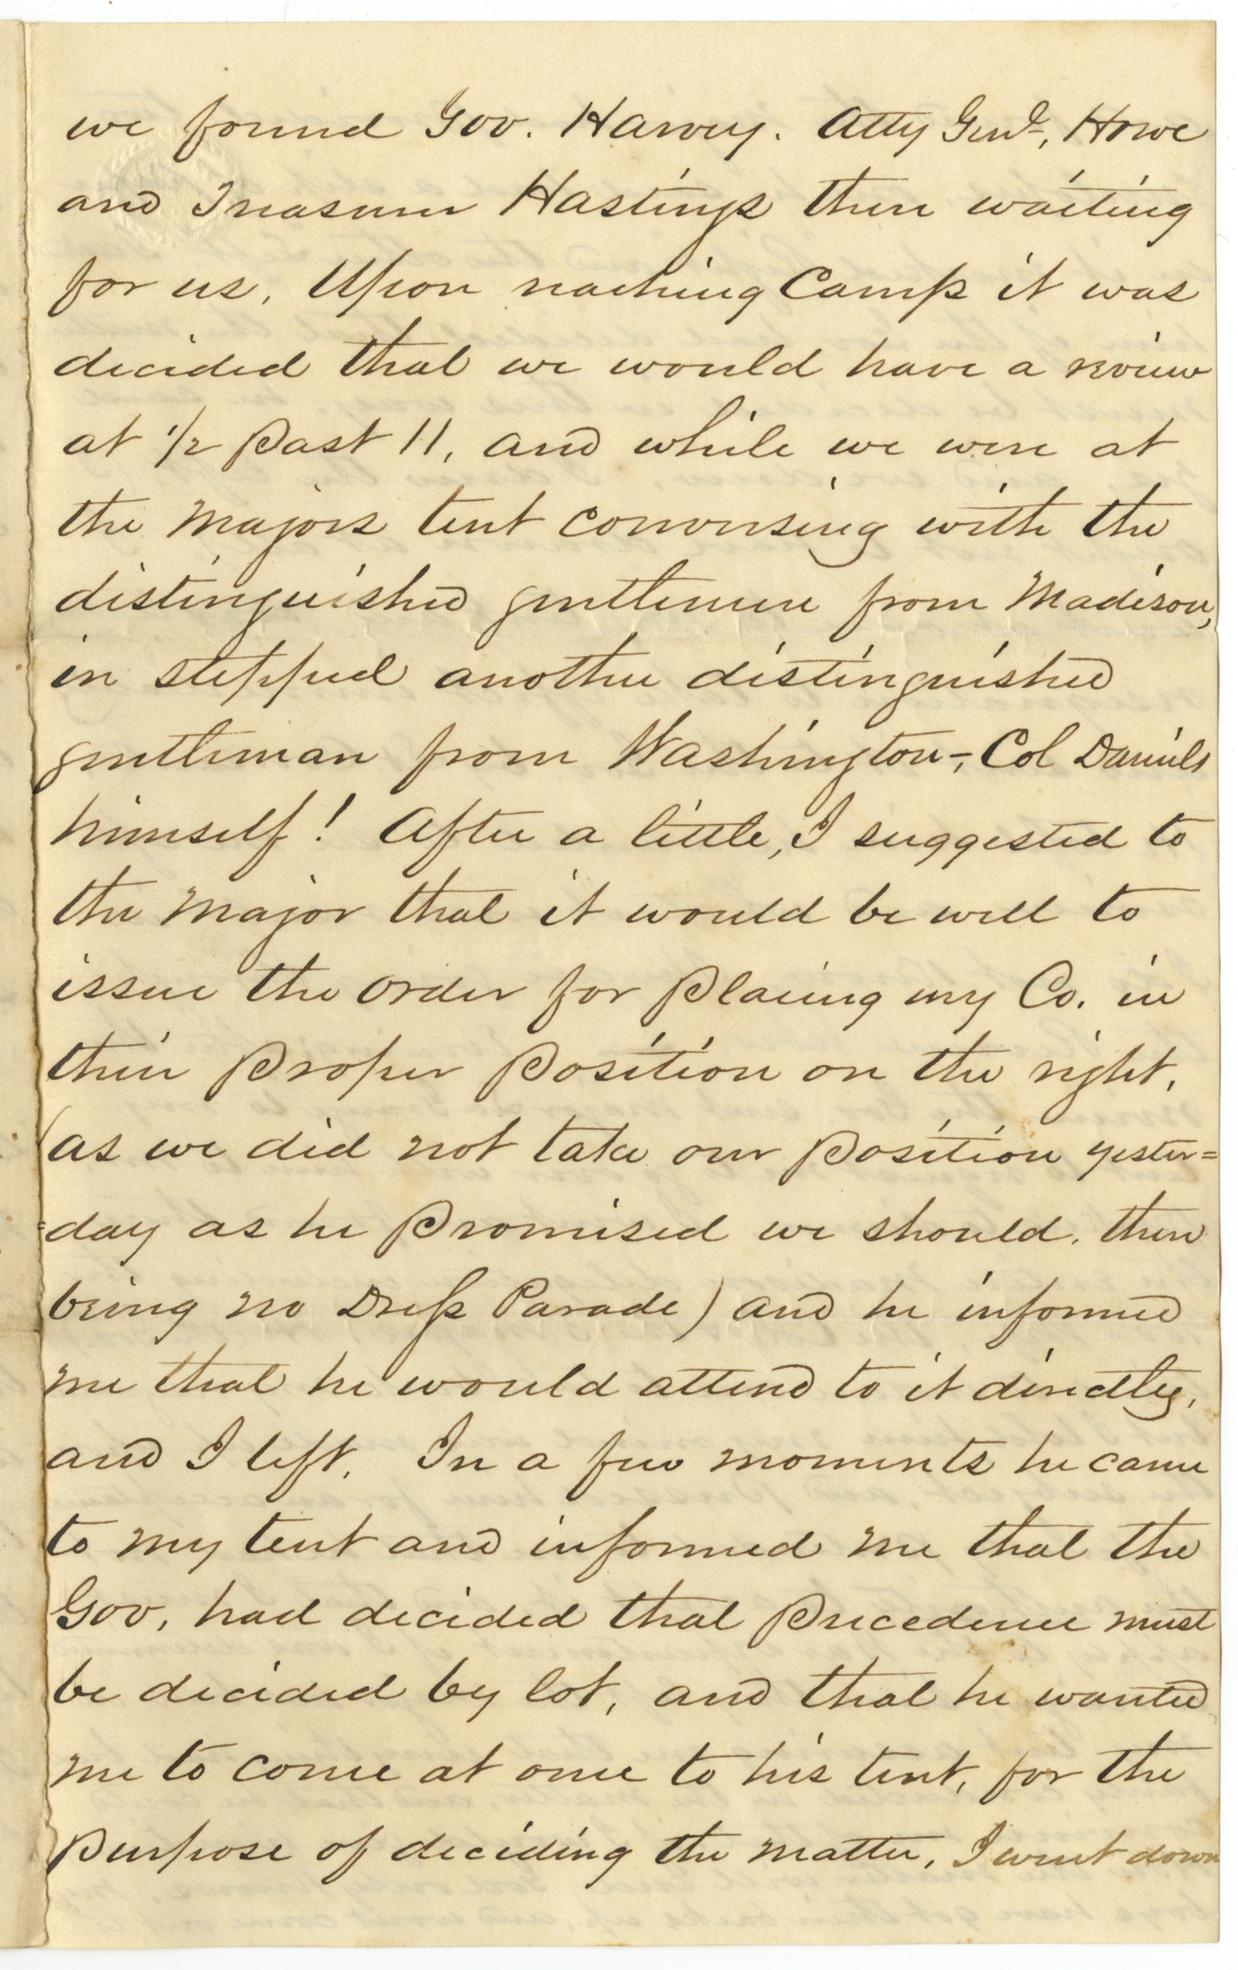 we found Gov. Harvey. Atty Genl, Howe
and Treasurer Hastings there waiting
for us. Upon reaching Camp it was
decided that we would have a review
at 1/2 Past 11, and while we were at
the Majors tent conversing with the
distinguished gentlemen from Madison,
in stepped another distinguished
gentleman from Washington-, Col Daniels
himself! After a little, I suggested to
the Major that it would be well to
issue the order for Placing my Co. in
their Proper Position on the right,
(as we did not take our Position yester=
=day as he Promised we should. there
being no Dress Parade) and he informed
me that he would attend to it directly,
and I left. In a few moments he came
to my tent and informed me that the
Gov, had decided that Precedence must
be decided by lot, and that he wanted
me to come at once to his tent, for the
Purpose of deciding the matter, I went down